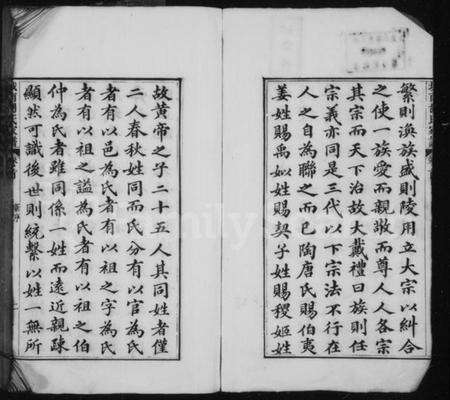 繁則渙族盛則陵用立大宗以糾合
之使一族愛而親敬而尊人人各宗
其宗而天下治故大戴禮曰族則任
宗義亦同是三代以下宗法不行在
人之自為聯之而已陶唐氏賜伯夷
姜姓賜禹姒姓賜契子姓賜稷姬姓
故黃帝之子二十五人其同姓者僅
二人春秋姓同而氏分有以官為氏
者有以邑為氏者有以祖之字為氏
者有以祖之謚為氏者有以祖之伯
仲為氏者雖同係一姓而遠近親疎
顯然可識後世則統繫以姓一無所